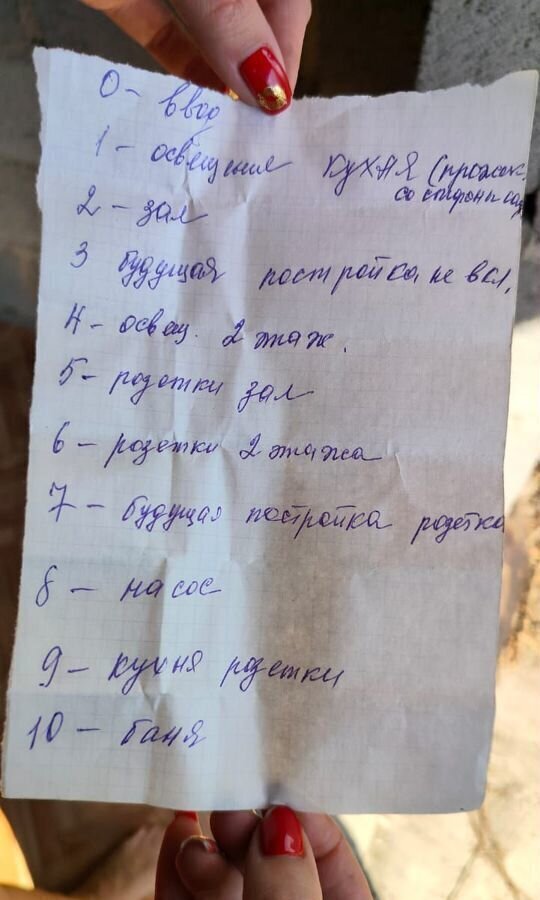 0 - ввод
1 - освещения КУХНЯ (прожек
со стороны сад
2 - зал
3 будущая постройка не вкл.
4 - освещ. 2 этаж.
5 - розетки зал
6 - розетки 2 этажа
7 - будущая постройка розетка
8 - насос
9 - кухня розетки
10 - баня